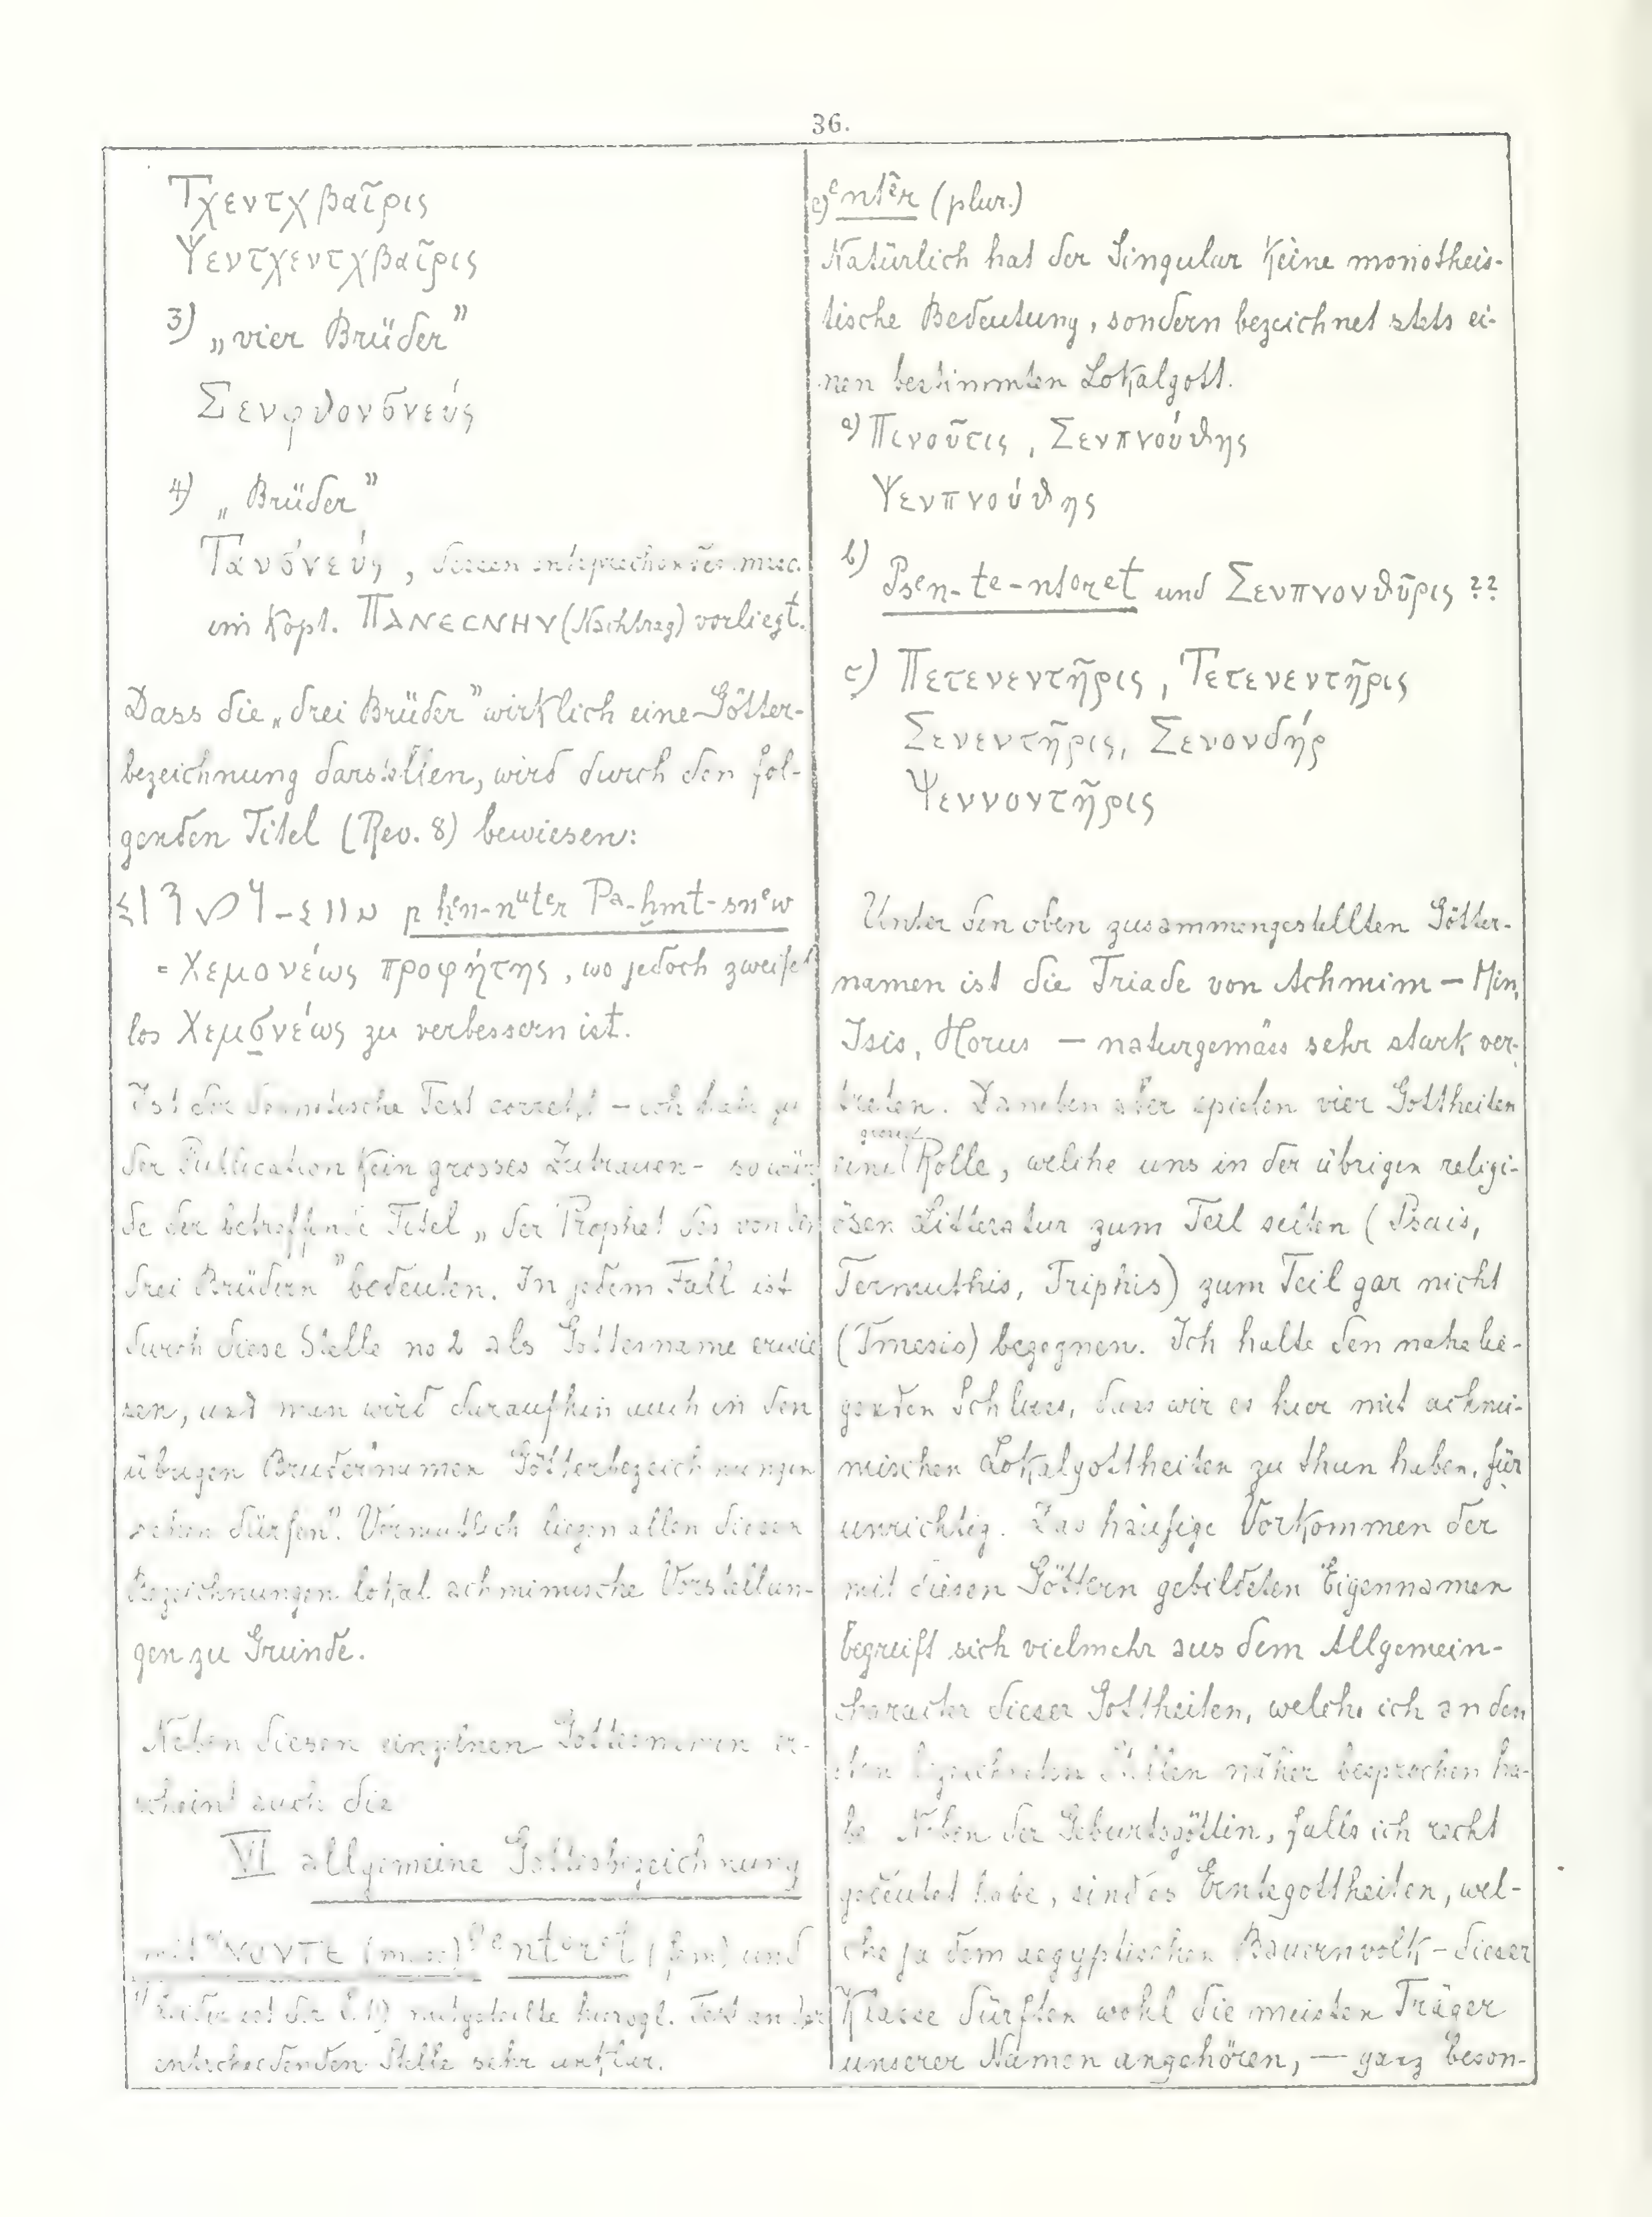 36.
Τχεντχβαῖρις
Ψεντχεντχβαῖρις
3) „vier Brüder”
Σενφθονσνεύς
4) „Brüder”
Τανσνεύς, dessen entsprechendes masc.
im Kopt. ⲠⲀⲚⲈⲤⲚⲎⲨ (Nachtrag) vorliegt.
Dass die „drei Brüder” wirklich eine Götter-
bezeichnung darstellen, wird durch den fol-
genden Titel (Rev. 8) bewiesen:
p hen-nuter Pa-ḫmt-snew
= Χεμονέως προφήτης, wo jedoch zweifel
los Χεμσνέως zu verbessern ist.
Ist der demotische Text correkt – ich habe zu
der Publication kein grosses Zutrauen – so wür
de der betreffende Titel „der Prophet des von den
drei Brüdern” bedeuten. In jedem Fall ist
durch diese Stelle no 2 als Göttername erwie
sen, und man wird daraufhin auch in den
übrigen Brudernamen Götterbezeichnungen
sehen dürfen. Vermutlich liegen allen diesen
Bezeichnungen lokal achmimische Vorstellun-
gen zu Grunde.
Neben diesen einzelnen Götternamen er-
scheint auch die
VI allgemeine Gottesbezeichnung
mit a) ⲚⲞⲨⲦⲈ (masc) b) entoret (fem) und
1) Leider ist der mitgeteilte hierogl. Text an der
entscheidenden Stelle sehr unklar.
c) entêr (plur.)
Natürlich hat der Singular keine monotheis-
tische Bedeutung, sondern bezeichnet stets ei-
nen bestimmten Lokalgott.
a) Πινοῦτις, Σενπνούθης
Ψενπνούθης
b) Psen-te-ntoret und Σενπνονθῦρις ??
c) Πετενεντῆρις, Τετενεντῆρις
Σενεντῆρις, Σενονδήρ
Ψεννοντῆρις
Unter den oben zusammengestellten Götter-
namen ist die Triade von Achmim – Min,
Isis, Horus – naturgemäss sehr stark ver-
treten. Daneben aber spielen vier Gottheiten
eine grosse Rolle, welche uns in der übrigen religi-
ösen Litteratur zum Teil selten (Psais,
Termuthis, Triphis) zum Teil gar nicht
(Tmesis) begegnen. Ich halte den nahe lie-
genden Schluss, dass wir es hier mit achmi-
mischen Lokalgottheiten zu thun haben, für
unrichtig. Das häufige Vorkommen der
mit diesen Göttern gebildeten Eigennamen
begreift sich vielmehr aus dem Allgemein-
charackter dieser Gottheiten, welche ich an den
Stellen näher besprochen ha-
be. Neben der Geburtsgöttin, falls ich recht
gedeutet habe, sind es Erntegottheiten, wel-
che ja dem aegyptischen Bauernvolk – dieser
Klasse dürften wohl die meisten Träger
unserer Namen angehören, – ganz beson-